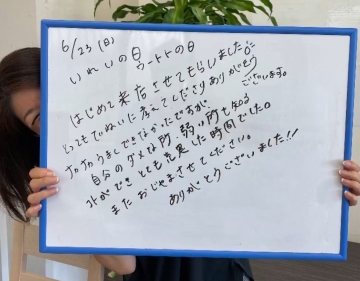 6/23(日)
いれいの日 ウートトの日
はじめて来店させてもらいました。
とってもていねいに教えてくださりありがとう
ございます。
なかなかうまくできなかったですが、
自分のダメな所、弱い所を知る
事ができとても充実した時間でした。
またおじゃまさせてください。
ありがとうございました!!